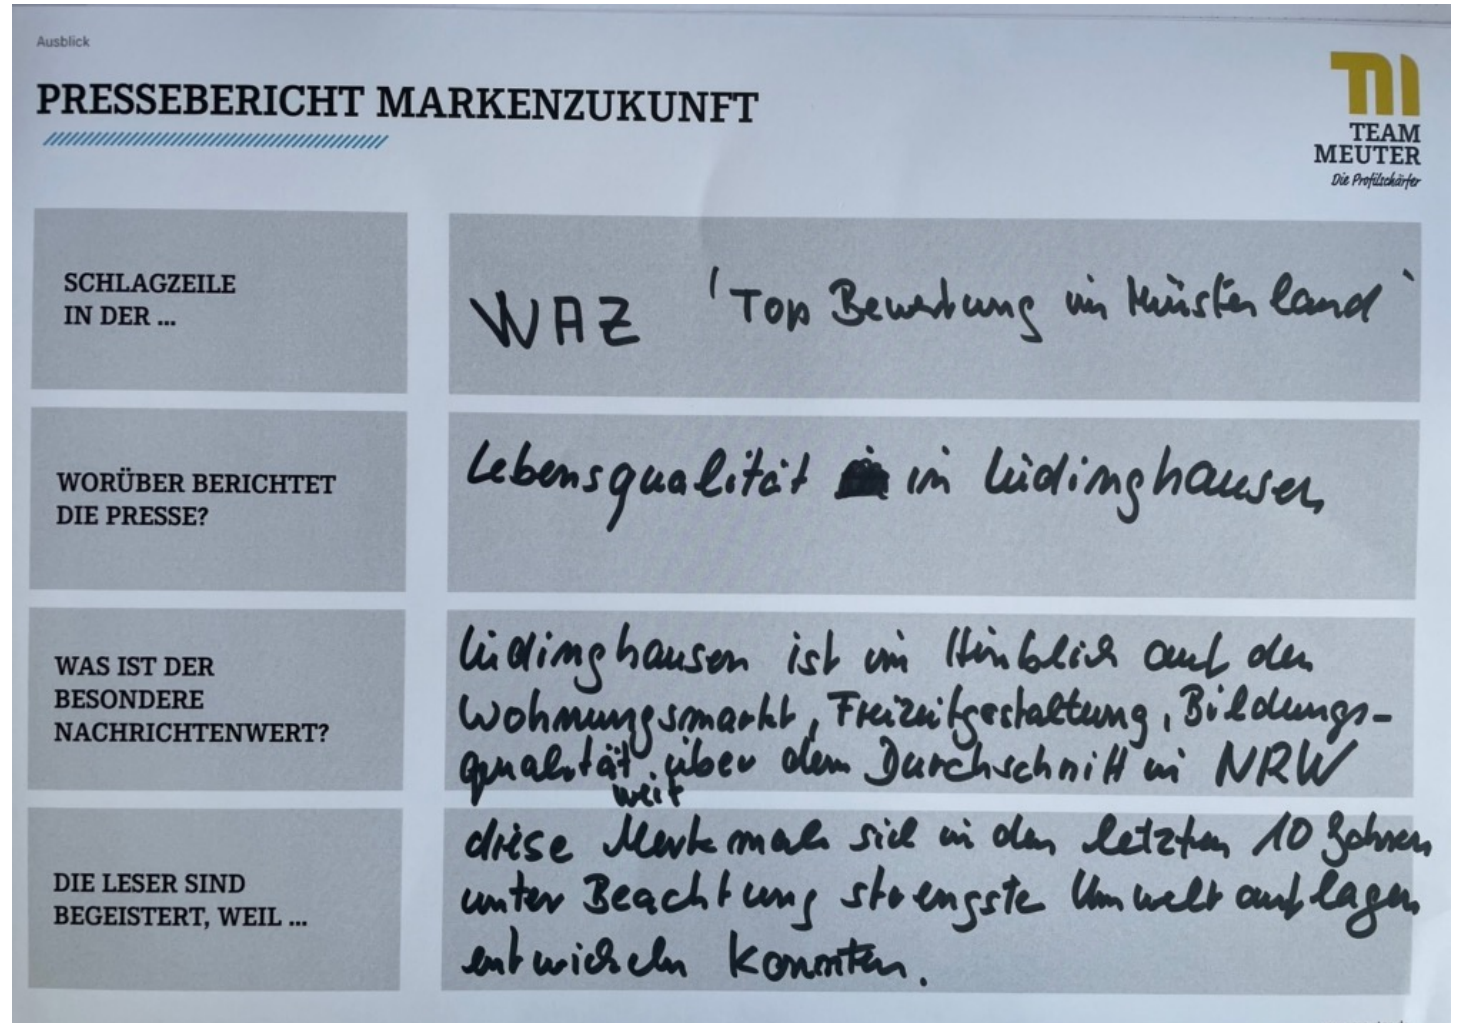 Ausblick
PRESSEBERICHT MARKENZUKUNFT
TEAM
MEUTER
Die Profilschärfer
SCHLAGZEILE
IN DER ...
WAZ 'Top Bewertung im Münsterland'
WORÜBER BERICHTET
DIE PRESSE?
Lebensqualität in Lüdinghausen
WAS IST DER
BESONDERE
NACHRICHTENWERT?
Lüdinghausen ist im Hinblick auf den
Wohnungsmarkt, Freizeitgestaltung, Bildungs-
qualität weit über dem Durchschnitt in NRW
DIE LESER SIND
BEGEISTERT, WEIL ...
diese Merkmale sich in den letzten 10 Jahren
unter Beachtung strengste Umweltauflagen
entwickeln konnten.